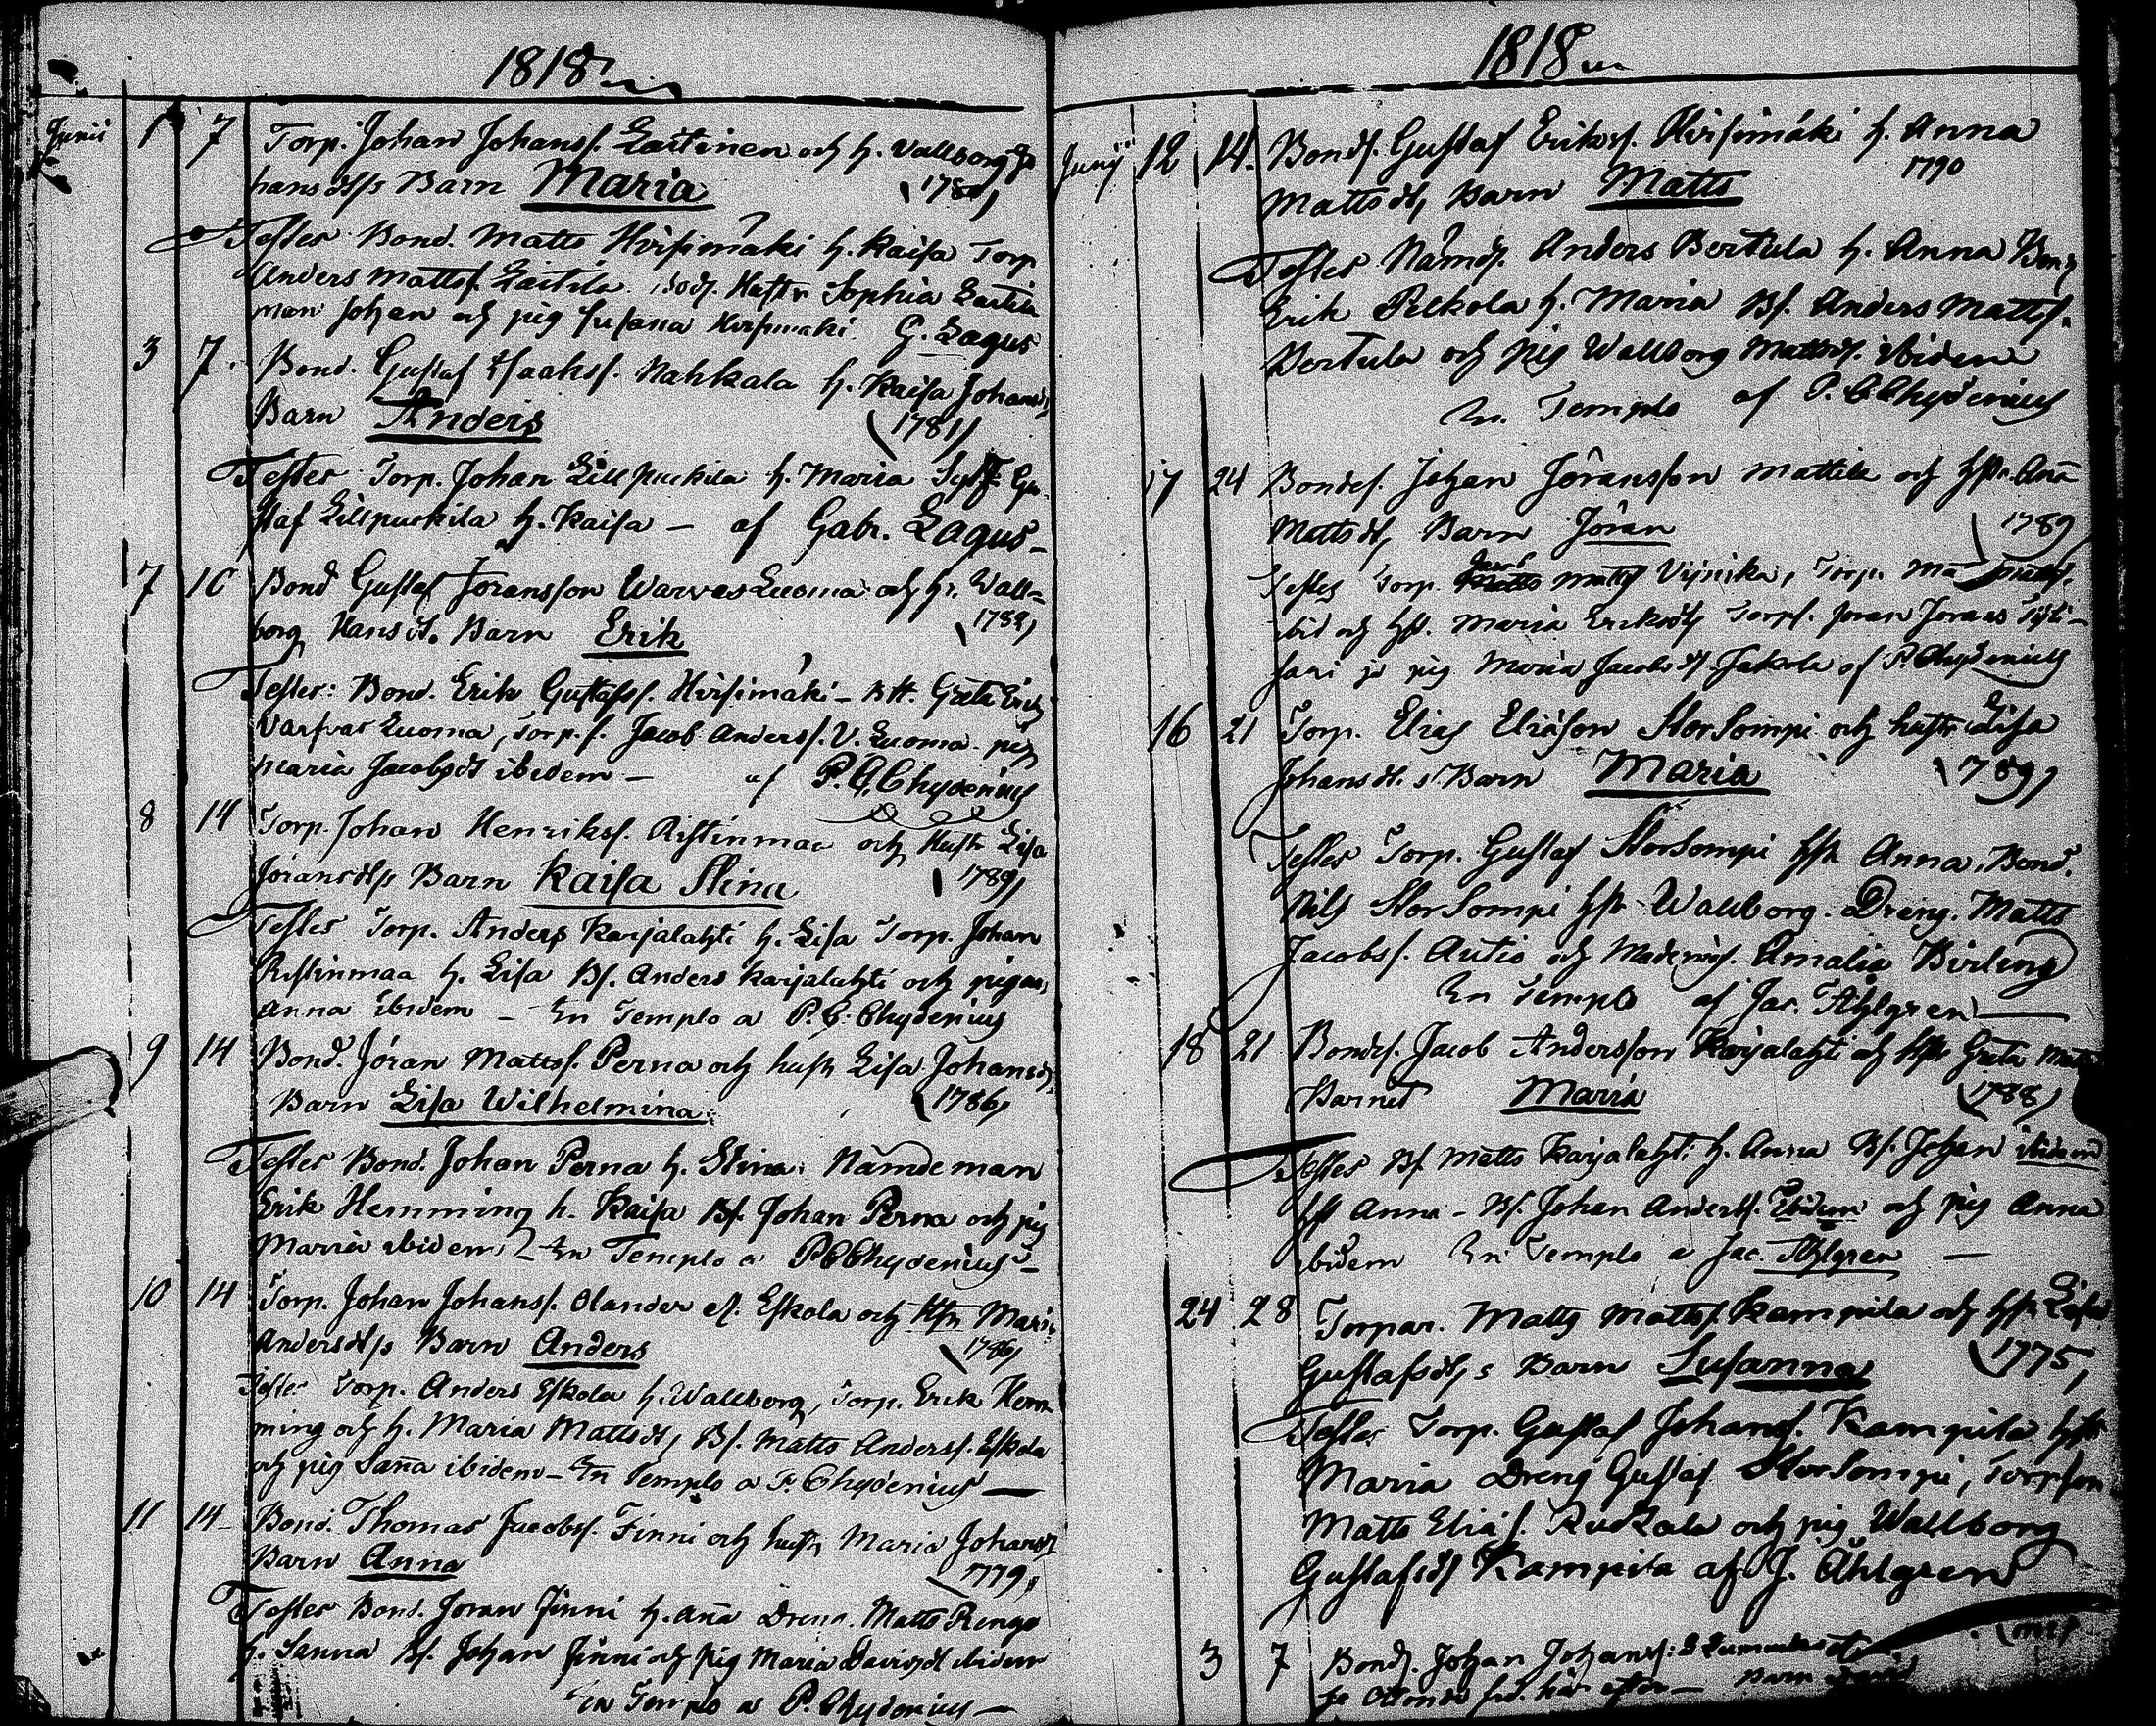 1818
Junii 1 7 Torp. Johan Johanss. Laitinen och h. Wallborg Jo
hansdtrs Barn Maria
Testes Bond. Matts Hirsimäki h. Kaisa Torp
Anders Mattss. Laitila, Hustr Sophia Laitila
Johan och pig Susana Hirsimäki G. Lagus
3 7. Bond. Gustaf Isaakss. Nahkala h. Kaisa Johansd
Barn Anders (1781)
Testes Torp. Johan Lillpuckila h. Maria Gu
staf Lillpuckila h. Kaisa — af Gabr. Lagus—
7 10 Bond Gustaf Joransson Warvas Luoma och h. Wall=
borg Hansdt. Barn Erik
Testes: Bond. Erik Gustafss. Hirsimäki — Greta Erics
Varfvas Luoma, Torp. s. Jacob Anderss. V. Luoma. pig
Maria Jacobsdt ibidem — af P. C. Chydenius
8 14 Torp. Johan Henrikss. Ristinmaa och Hustr Lisa
Joransdtrs Barn Kaisa Stina (1789)
Testes Torp. Anders Karjalahti h. Lisa Torp. Johan
Ristinmaa h. Lisa Bs. Anders Karjalahti och pigan
Anna ibidem — In Templo a P. C. Chydenius
9 14 Bond. Jöran Mattss. Perna och hustr Lisa Johansd
Barn Lisa Wilhelmina (1786)
Testes Bond. Johan Perna h. Stina. Nämdeman
Erik Hemming h. Kaisa Bs. Johan Perna och pig
Maria ibidem — In Templo a P C Chydenius —
10 14 Torp. Johan Johanss. Olander el. Eskola och Hr Mari
Andersdtrs Barn Anders (1786)
Testes Torp. Anders Eskola h. Wallborg, Torp. Erik Hem
ming och h. Maria Mattsdt, Bs. Matts Anderss. Eskola
och pig Saña ibidem — In Templo a P. Chydenius —
11 14 Bond. Thomas Jacobss. Finni och hustr Maria Johansd
Barn Anna 1779,
Testes Bond. Joran Finni h. Aña Dreng. Matts Rengo
h. Sanna Bs. Johan Finni och pig Maria Davidsdt ibidem
In Templo a P. Chydenius —
1818
Junij 12 14. Bonds. Gustaf Erikss. Hirsimäki h. Anna
1790
Mattsdt, Barn Matts
Testes Nämdm. Anders Bertula h. Anna Bond
Erik Pelkola h. Maria Bs. Anders Mattss.
Bertula och pig Wallborg Mattsdt. ibidem
In Templo af P. C. Chydenius
17 24 Bondes. Johan Jöransson Mattila och hstr. Aña
Mattsdt, Barn Jöran 1789
Testes Torp. Jacob Matts Torp.
ibid och hst. Maria Eriksdtr Torps. Joran Jorans
pig Maria Jacobsdt Jakola af P. Chydenius
16 21 Torp. Elias Eliäson StorSompi och hustr Lisa
Johansdt.s Barn Maria 1789,
Testes Torp. Gustaf StorSompi hstr Anna. Bond.
Nils StorSompi hstr Wallborg. Dreng. Matts
Jacobss. Autio och Mademois. Amalia Birling
In Templo af Jac. Åhlgren —
18 21 Bondes. Jacob Andersson Karjalahti och hstr Greta Matts
Barnet Maria (1788)
Testes Bs. Matts Karjalahti h. Anna Bs. Johan ibidem
hst Anna — Bs. Johan Anderss. Ibidem och pig Anna
ibidem In Templo a Jac. Åhlgren —
24 28 Torpar. Matts Mattss. Kampila och hstr Lisa
Gustafsdtrs Barn Susanna (1775,
Testes Torp. Gustaf Johanss. Kampila hstr
Maria Dreng Gustaf StorSompi, Torpson
Matts Eliäs. Ruckala och pig Wallborg
Gustafsdt Kampila af J. Åhlgren
3 7 Bonds. Johan Johanss.
här efter — Barn